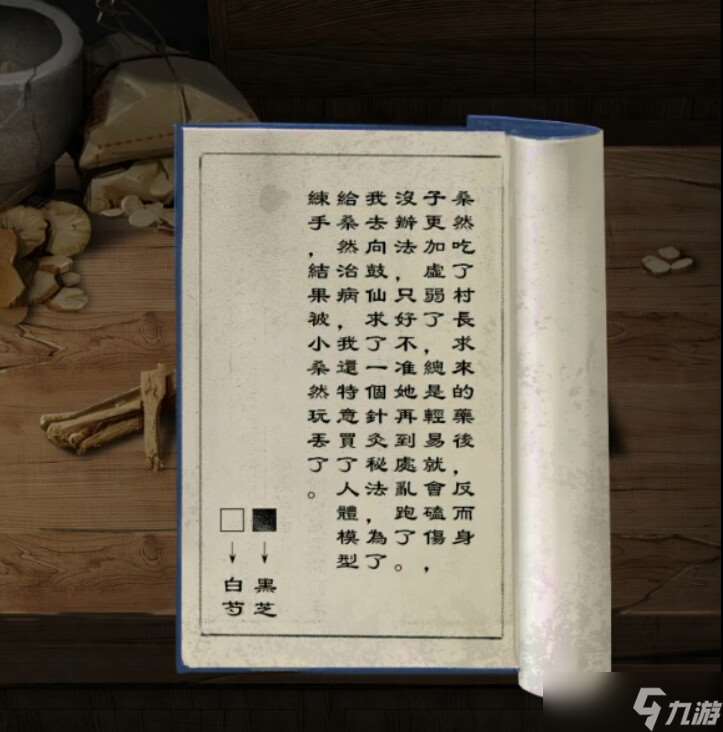 桑然吃了村長求來的藥後，反而身
子更加虛弱了，總是輕易就會磕傷，
沒辦法，只好不准她再到處亂跑了。
我去向鼓仙求了一個針灸秘法，為了
給桑然治病，我還特意買了人體模型
練手，結果被小桑然玩丟了。
黑芝
白芍
九游